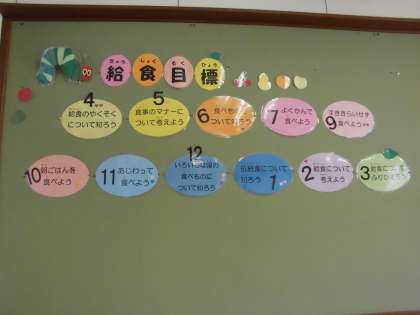 きゅう しょく もく ひょう
給食目標
4
給食のやくそく
について知ろう
5
食事のマナーに
ついて考えよう
6
食べもの
について知ろう
7
よくかんで
食べよう
9
すききらいせず
食べよう
10
朝ごはんを
食べよう
11
あじわって
食べよう
12
食べものに
ついて知ろう
1
給食について
知ろう
2
給食について
考えよう
3
給食について
ふりかえろう